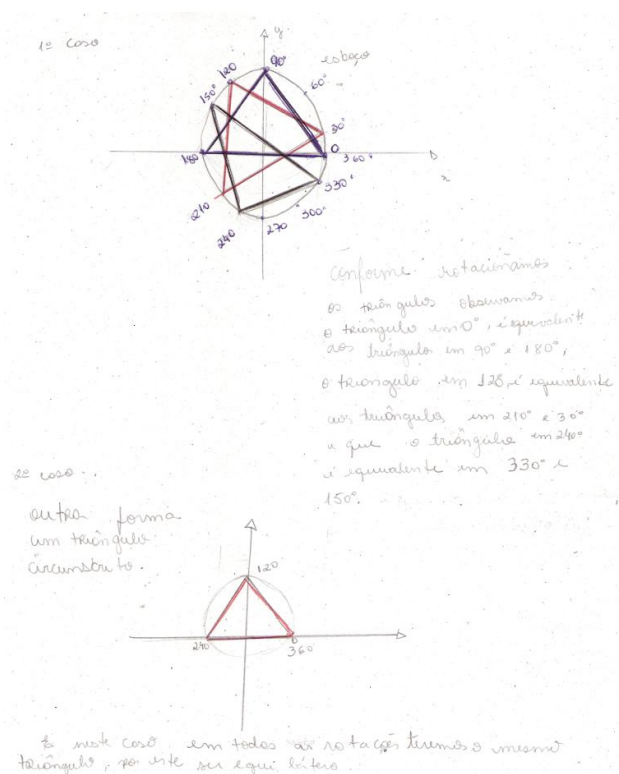 1º caso
y
esboço
90°
120
60°
150°
30°
180
0
360°
x
330°
210
300°
240
270
conforme rotacionamos
os triângulos observamos
o triângulo em 0°, é equivalente
aos triângulos em 90° e 180°,
o triangulo em 120, é equivalente
aos triângulos em 210° e 30°
e que o triângulo em 240°
é equivalente em 330° e
150°.
2º caso
outra forma
um triângulo
circunscrito.
120
240
360
neste caso em todas as rotações teremos o mesmo
triângulo, por este ser equilátero.